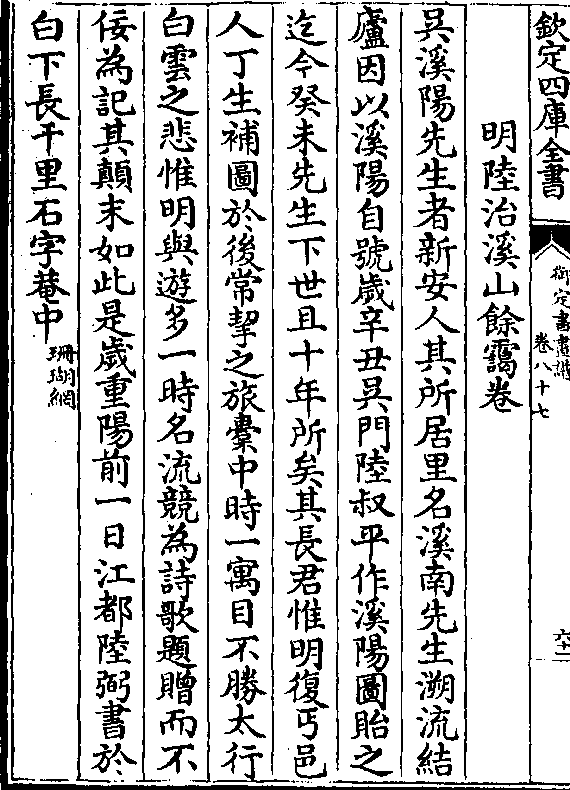 欽定四庫全書
御定書畫譜
卷八十七
六十一
明陸治溪山餘靄卷
吳溪陽先生者新安人其所居里名溪南先生溯流結
廬因以溪陽自號歲辛丑吳門陸叔平作溪陽圖貽之
迄今癸未先生下世且十年所矣其長君惟明復丐邑
人丁生補圖於後常挈之旅橐中時一寓目不勝太行
白雲之悲惟明與遊多一時名流競為詩歌題贈而不
佞為記其顛末如此是歲重陽前一日江都陸弼書於
白下長干里石字菴中
珊瑚網